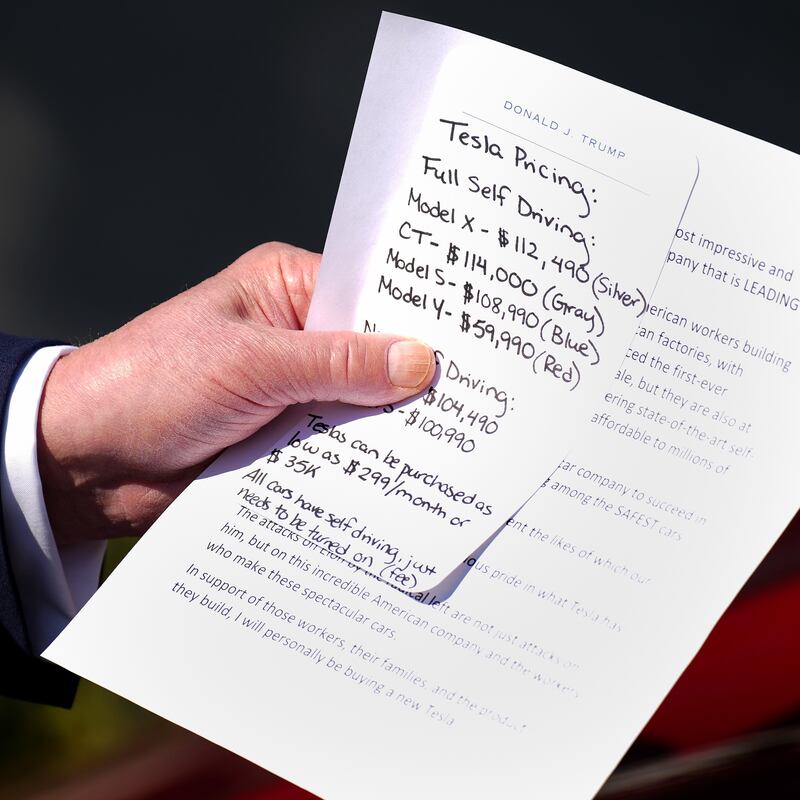 DONALD J. TRUMP
Tesla Pricing:
Full Self Driving:
Model X - $112,490 (Silver)
CT- $114,000 (Gray)
Model S- $108,990 (Blue)
Model Y- $59,990 (Red)
Driving:
$104,490
S - $100,990
Teslas can be purchased as
low as $299/month or
$35K
All cars have self driving, just
needs to be turned on (fee)
ost impressive and
pany that is LEADING
erican workers building
an factories, with
ced the first-ever
ale, but they are also at
ering state-of-the-art self-
affordable to millions of
car company to succeed in
among the SAFEST cars
ent the likes of which our
ous pride in what Tesla has
The attacks on Elon by the radical left are not just attacks on
him, but on this incredible American company and the workers
who make these spectacular cars.
In support of those workers, their families, and the product
they build, I will personally be buying a new Tesla